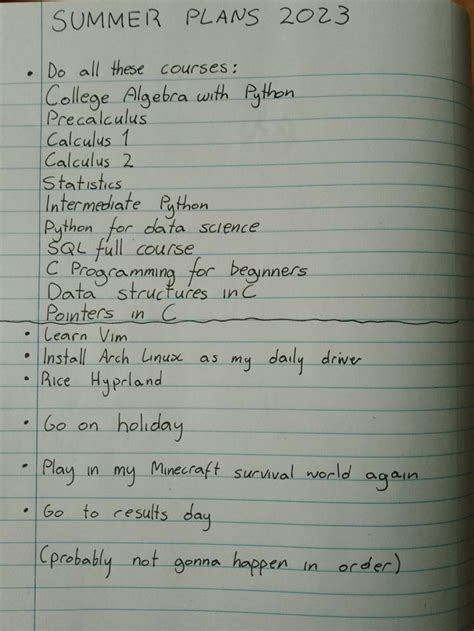 SUMMER PLANS 2023
• Do all these courses:
College Algebra with Python
Precalculus
Calculus 1
Calculus 2
Statistics
Intermediate Python
Python for data science
SQL full course
C Programming for beginners
Data structures in C
Pointers in C
• Learn Vim
• Install Arch Linux as my daily driver
• Rice Hyprland
• Go on holiday
• Play in my Minecraft survival world again
• Go to results day
(probably not gonna happen in order)